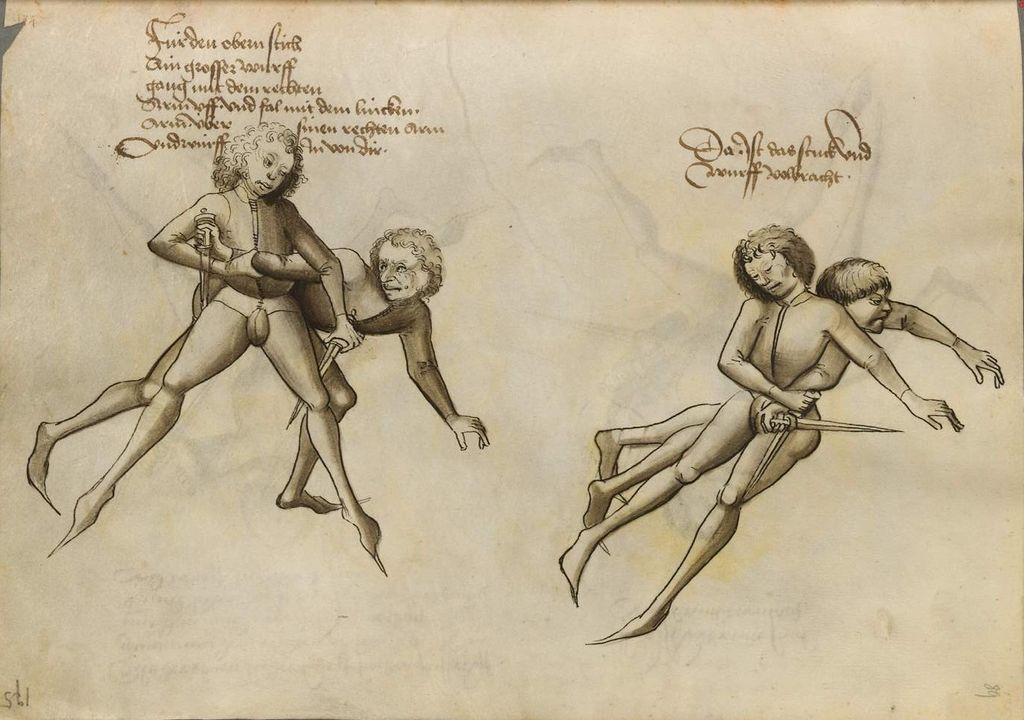 Für den obern stich
Ain grosser wurff
gang mit dem rechten
Arm vff vnd fal mit dem lincken
Arm über sinen rechten Arm
Vnd wirff In von dir.
Da ist das stuck vnd
wurff volbracht.